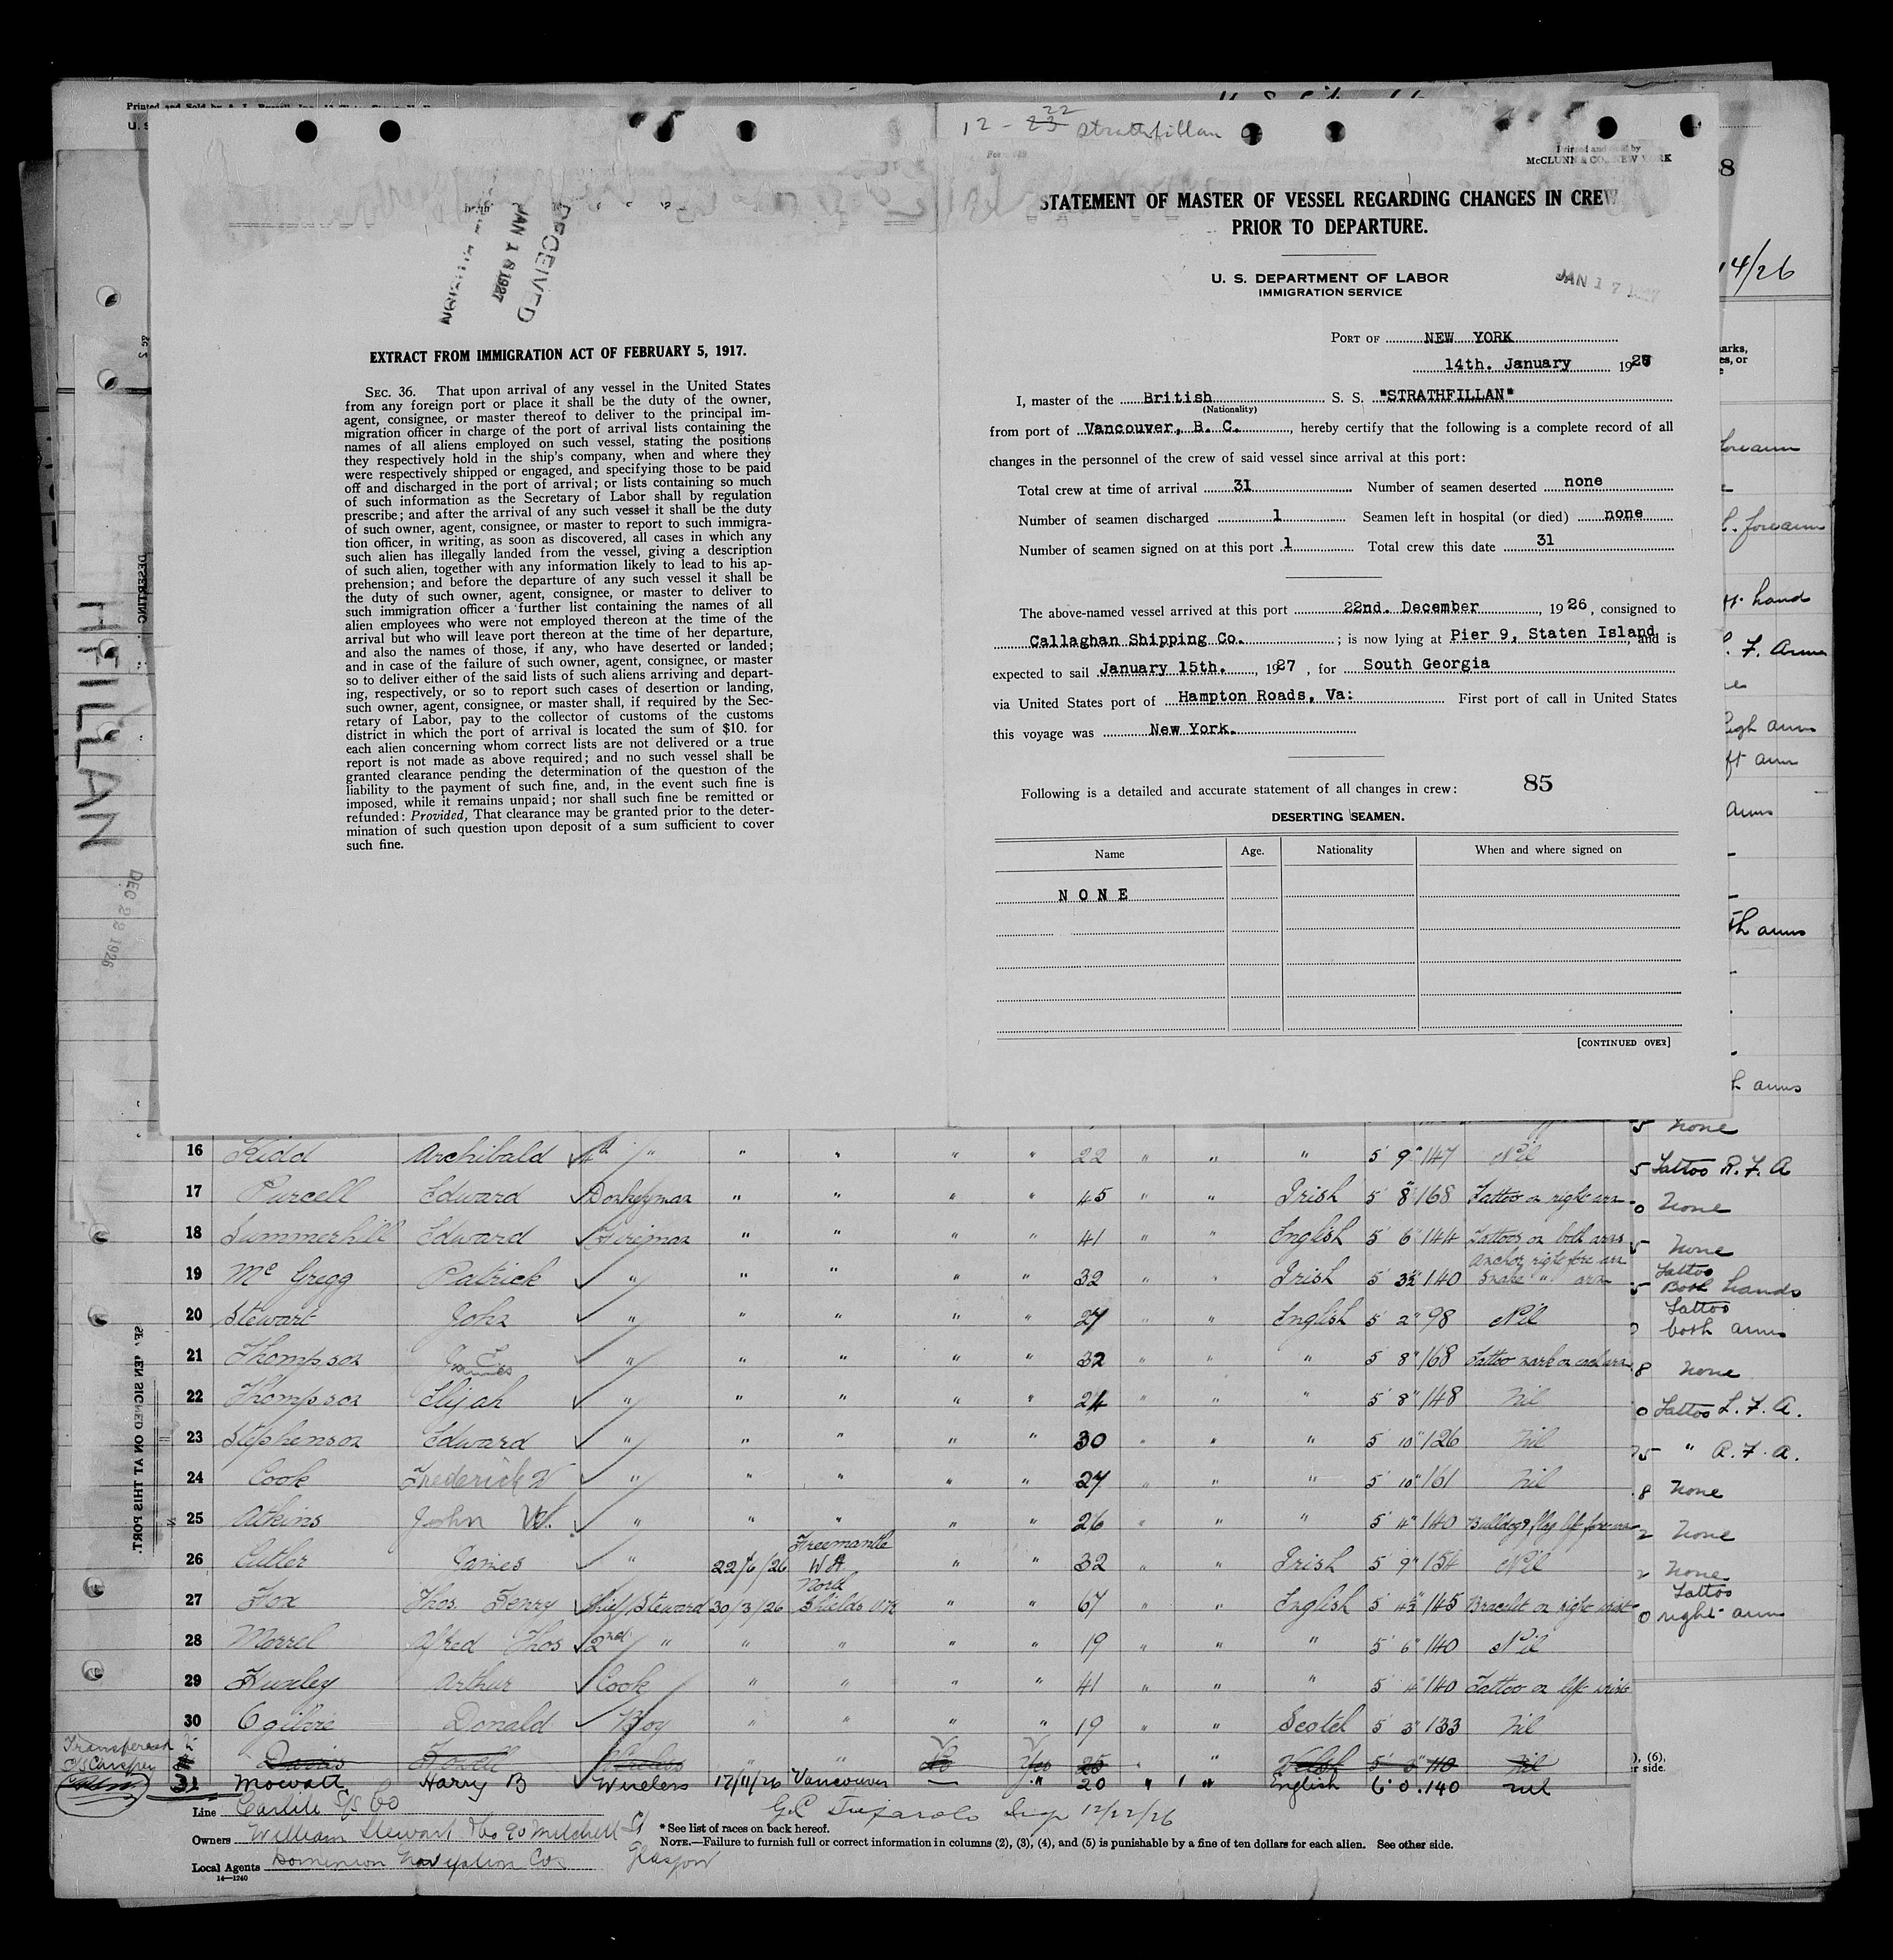 12 - 22 Strathfillan
McCLUNN & CO., NEW YORK
STATEMENT OF MASTER OF VESSEL REGARDING CHANGES IN CREW
PRIOR TO DEPARTURE.
U. S. DEPARTMENT OF LABOR
IMMIGRATION SERVICE
JAN 17 1927
PORT OF NEW YORK
14th. January 1927
I, master of the British S. S. "STRATHFILLAN"
(Nationality)
from port of Vancouver, B. C., hereby certify that the following is a complete record of all
changes in the personnel of the crew of said vessel since arrival at this port:
Total crew at time of arrival 31 Number of seamen deserted none
Number of seamen discharged 1 Seamen left in hospital (or died) none
Number of seamen signed on at this port 1 Total crew this date 31
The above-named vessel arrived at this port 22nd. December, 1926, consigned to
Callaghan Shipping Co. ; is now lying at Pier 9, Staten Island, and is
expected to sail January 15th., 1927, for South Georgia
via United States port of Hampton Roads, Va: First port of call in United States
this voyage was New York.
Following is a detailed and accurate statement of all changes in crew: 85
DESERTING SEAMEN.
Name Age. Nationality When and where signed on
NONE
[CONTINUED OVER]
RECEIVED
JAN 18 1927
EXTRACT FROM IMMIGRATION ACT OF FEBRUARY 5, 1917.
SEC. 36. That upon arrival of any vessel in the United States
from any foreign port or place it shall be the duty of the owner,
agent, consignee, or master thereof to deliver to the principal im-
migration officer in charge of the port of arrival lists containing the
names of all aliens employed on such vessel, stating the positions
they respectively hold in the ship's company, when and where they
were respectively shipped or engaged, and specifying those to be paid
off and discharged in the port of arrival; or lists containing so much
of such information as the Secretary of Labor shall by regulation
prescribe; and after the arrival of any such vessel it shall be the duty
of such owner, agent, consignee, or master to report to such immigra-
tion officer, in writing, as soon as discovered, all cases in which any
such alien has illegally landed from the vessel, giving a description
of such alien, together with any information likely to lead to his ap-
prehension; and before the departure of any such vessel it shall be
the duty of such owner, agent, consignee, or master to deliver to
such immigration officer a further list containing the names of all
alien employees who were not employed thereon at the time of the
arrival but who will leave port thereon at the time of her departure,
and also the names of those, if any, who have deserted or landed;
and in case of the failure of such owner, agent, consignee, or master
so to deliver either of the said lists of such aliens arriving and depart-
ing, respectively, or so to report such cases of desertion or landing,
such owner, agent, consignee, or master shall, if required by the Sec-
retary of Labor, pay to the collector of customs of the customs
district in which the port of arrival is located the sum of $10. for
each alien concerning whom correct lists are not delivered or a true
report is not made as above required; and no such vessel shall be
granted clearance pending the determination of the question of the
liability to the payment of such fine, and, in the event such fine is
imposed, while it remains unpaid; nor shall such fine be remitted or
refunded: Provided, That clearance may be granted prior to the deter-
mination of such question upon deposit of a sum sufficient to cover
such fine.
HFILLAN
DEC 22 1926
16 Kidd Archibald 4th " " " " " 22 " " " 5' 9" 147 Nil
17 Purcell Edward Donkeyman " " " " 45 " " Irish 5' 8" 168 Tattoo on right arm
18 Summerhill Edward Fireman " " " " 41 " " English 5' 6" 144 Tattoos on both arms
19 Mc Gregg Patrick " " " " " 32 " " Irish 5' 3½" 140 Anchor right fore arm Snake " arm
20 Stewart John " " " " " 27 " " English 5' 2" 98 Nil
21 Thompson James " " " " " 32 " " " 5' 8" 168 Tattoo mark on each arm
22 Thompson Elijah " " " " " 24 " " " 5' 8" 148 Nil
23 Stephenson Edward " " " " " 30 " " " 5' 10" 126 Nil
24 Cook Frederick W " " " " " 27 " " " 5' 10" 161 Nil
25 Atkins John W. " " " " " 26 " " " 5' 4" 140 Bulldog & flag left forearm
26 Cutler James " 22/6/26 Freemantle W A " " 32 " " Irish 5' 9" 154 Nil
27 Fox Thos Henry Chief Steward 30/3/26 North Shields U.K. " " 67 " " English 5' 4½" 145 Bracelet on right wrist
28 Morrel Alfred Thos 2nd " " " " " 19 " " " 5' 6" 140 Nil
29 Huxley Arthur Cook " " " 41 " " " 5' 4" 140 Tattoo on left wrist
30 Ogilvie Donald Boy " " " " 19 " " Scotch 5' 3" 133 Nil
Davies Howell Wireless " " No Yes 25 " " Welsh 5' 5" 110 Nil
31 Mowatt Harry B Wireless 17/11/26 Vancouver — " 20 " " English 6' 0 140 nil
Line Carlile S/S Co
12/22/26
Owners William Stewart & Co 90 Mitchell St Glasgow
Local Agents Dominion Navigation Co
14—1240
* See list of races on back hereof.
NOTE.—Failure to furnish full or correct information in columns (2), (3), (4), and (5) is punishable by a fine of ten dollars for each alien. See other side.
14/26
forearm
L. forearm
hand
F. Arm
arms
None
Tattoo R. F. A
None
None
Tattoo
Both hands
Tattoo
both arms
None
Tattoo L. F. A.
" R. F. A.
None
None
None
Tattoo
right arm